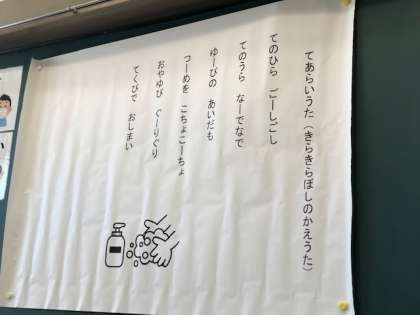 てあらいうた（きらきらぼしのかえうた）
てのひら ごーしごし
てのうら なーでなで
ゆーびの あいだも
つーめを こちょこーちょ
おやゆび ぐーりぐり
てくびで おしまい
い